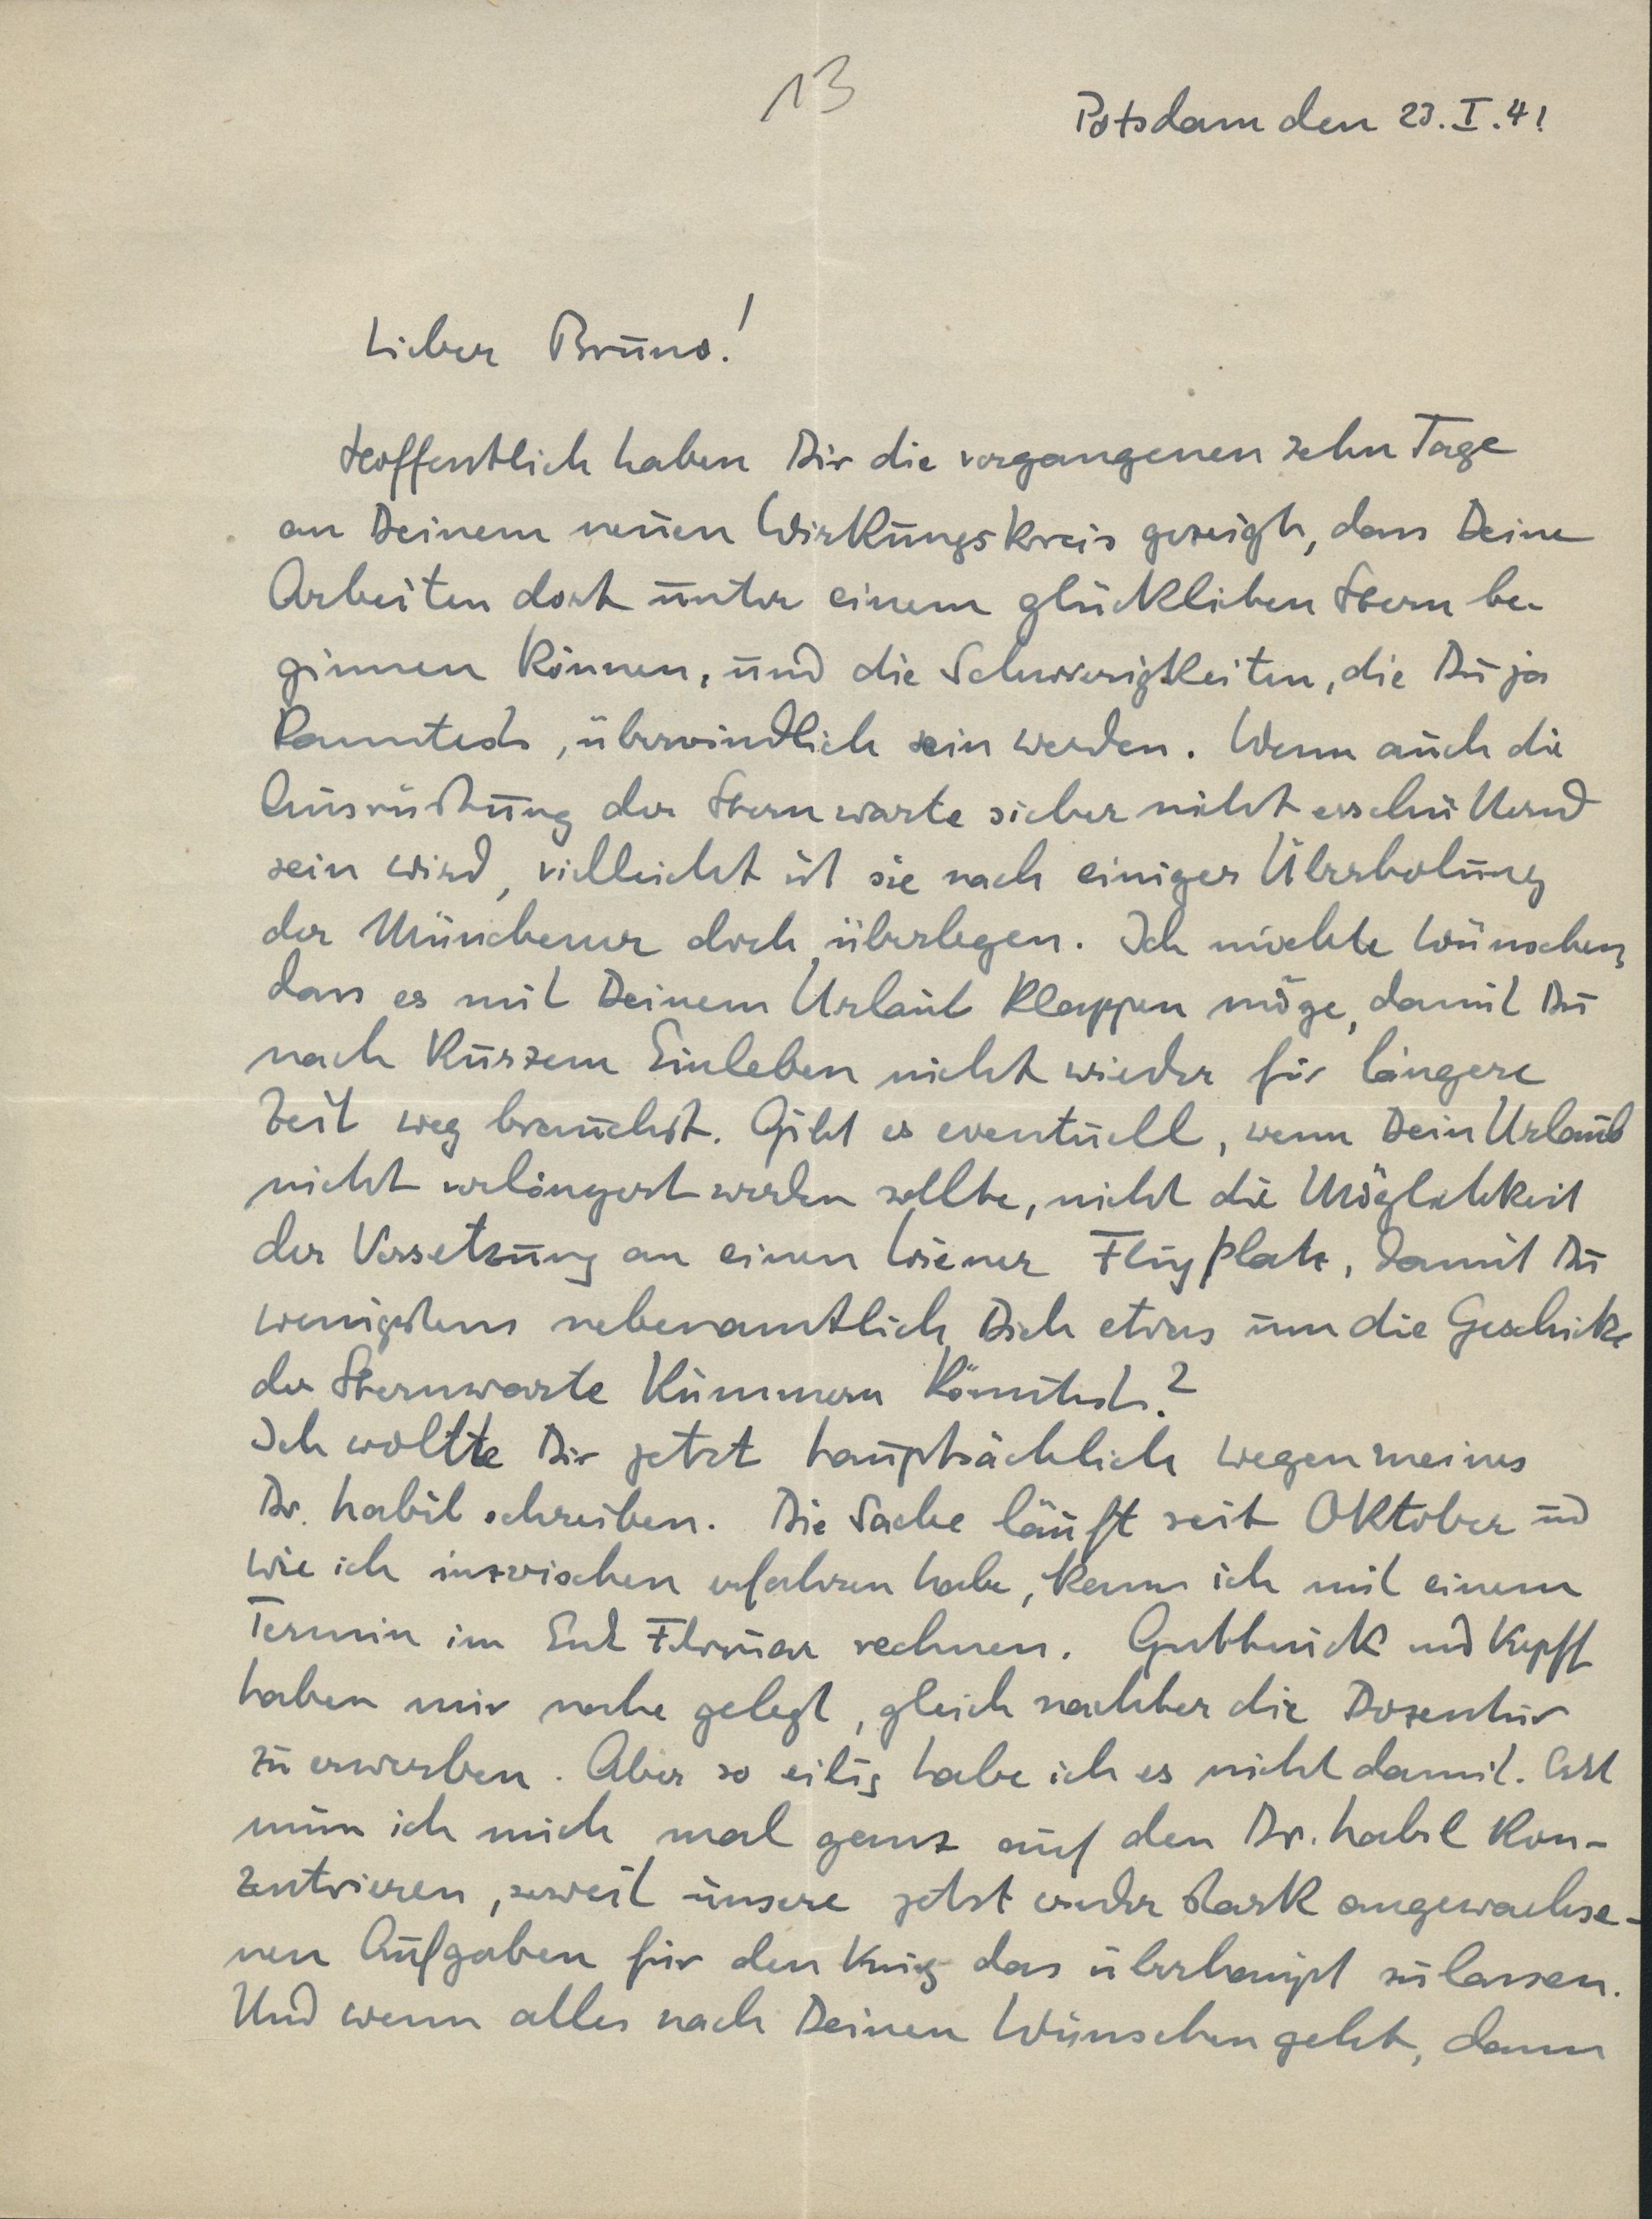 13
Potsdam den 23. I. 41
Lieber Bruno!
Hoffentlich haben Dir die vergangenen zehn Tage
an Deinem neuen Wirkungskreis gezeigt, dass Deine
Arbeiten dort unter einem glücklichen Stern be-
ginnen können, und die Schwierigkeiten, die Du ja
kanntest, überwindlich sein werden. Wenn auch die
Ausrüstung der Sternwarte sicher nicht erschütternd
sein wird, vielleicht ist sie nach einiger Überholung
der Münchener doch überlegen. Ich möchte wünschen,
dass es mit Deinem Urlaub klappen möge, damit Du
nach kurzem Einleben nicht wieder für längere
Zeit weg brauchst. Gibt es eventuell, wenn Dein Urlaub
nicht verlängert werden sollte, nicht die Möglichkeit
der Versetzung an einen Wiener Flugplatz, damit Du
wenigstens nebenamtlich Dich etwas um die Geschicke
der Sternwarte kümmern könntest?
Ich wollte Dir jetzt hauptsächlich wegen meines
Dr. habil schreiben. Die Sache läuft seit Oktober und
wie ich inzwischen erfahren habe, kann ich mit einem
Termin im End Februar rechnen. Guthnick und Kopff
haben mir nahe gelegt, gleich nachher die Dozentur
zu erwerben. Aber so eilig habe ich es nicht damit. Erst
muss ich mich mal ganz auf den Dr. habil kon-
zentrieren, soweit unsere jetzt wieder stark angewachse-
nen Aufgaben für den Krieg das überhaupt zulassen.
Und wenn alles nach Deinen Wünschen geht, dann